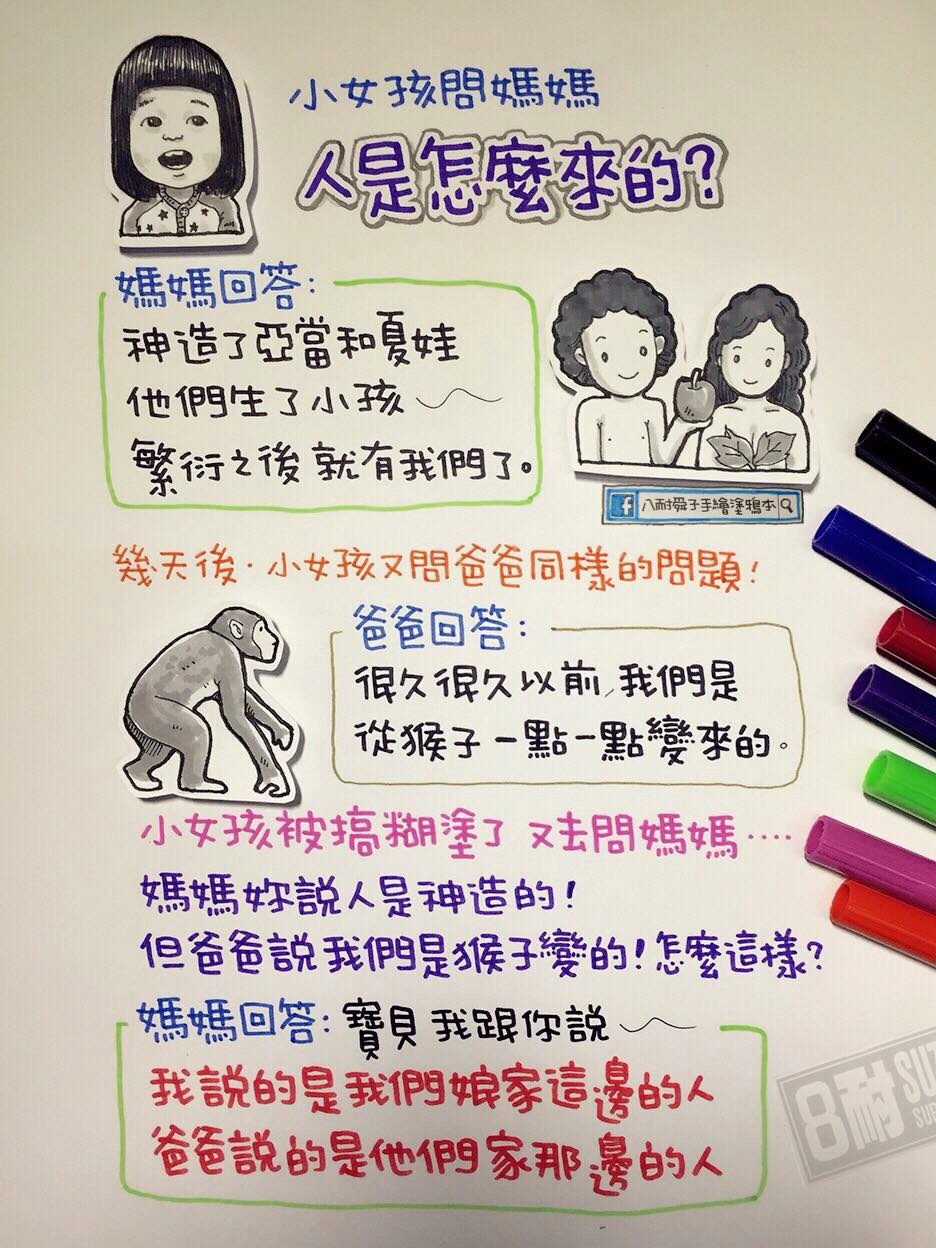 小女孩問媽媽
人是怎麼來的?
媽媽回答:
神造了亞當和夏娃
他們生了小孩～
繁衍之後 就有我們了。
八耐舜子手繪塗鴉本
幾天後·小女孩又問爸爸同樣的問題!
爸爸回答:
很久很久以前,我們是
從猴子 一點一點變來的。
小女孩被搞糊塗了 又去問媽媽‥‥
媽媽妳說人是神造的!
但爸爸說我們是猴子變的!怎麼這樣?
媽媽回答: 寶貝 我跟你說～
我說的是我們娘家這邊的人
爸爸說的是他們家那邊的人
8耐